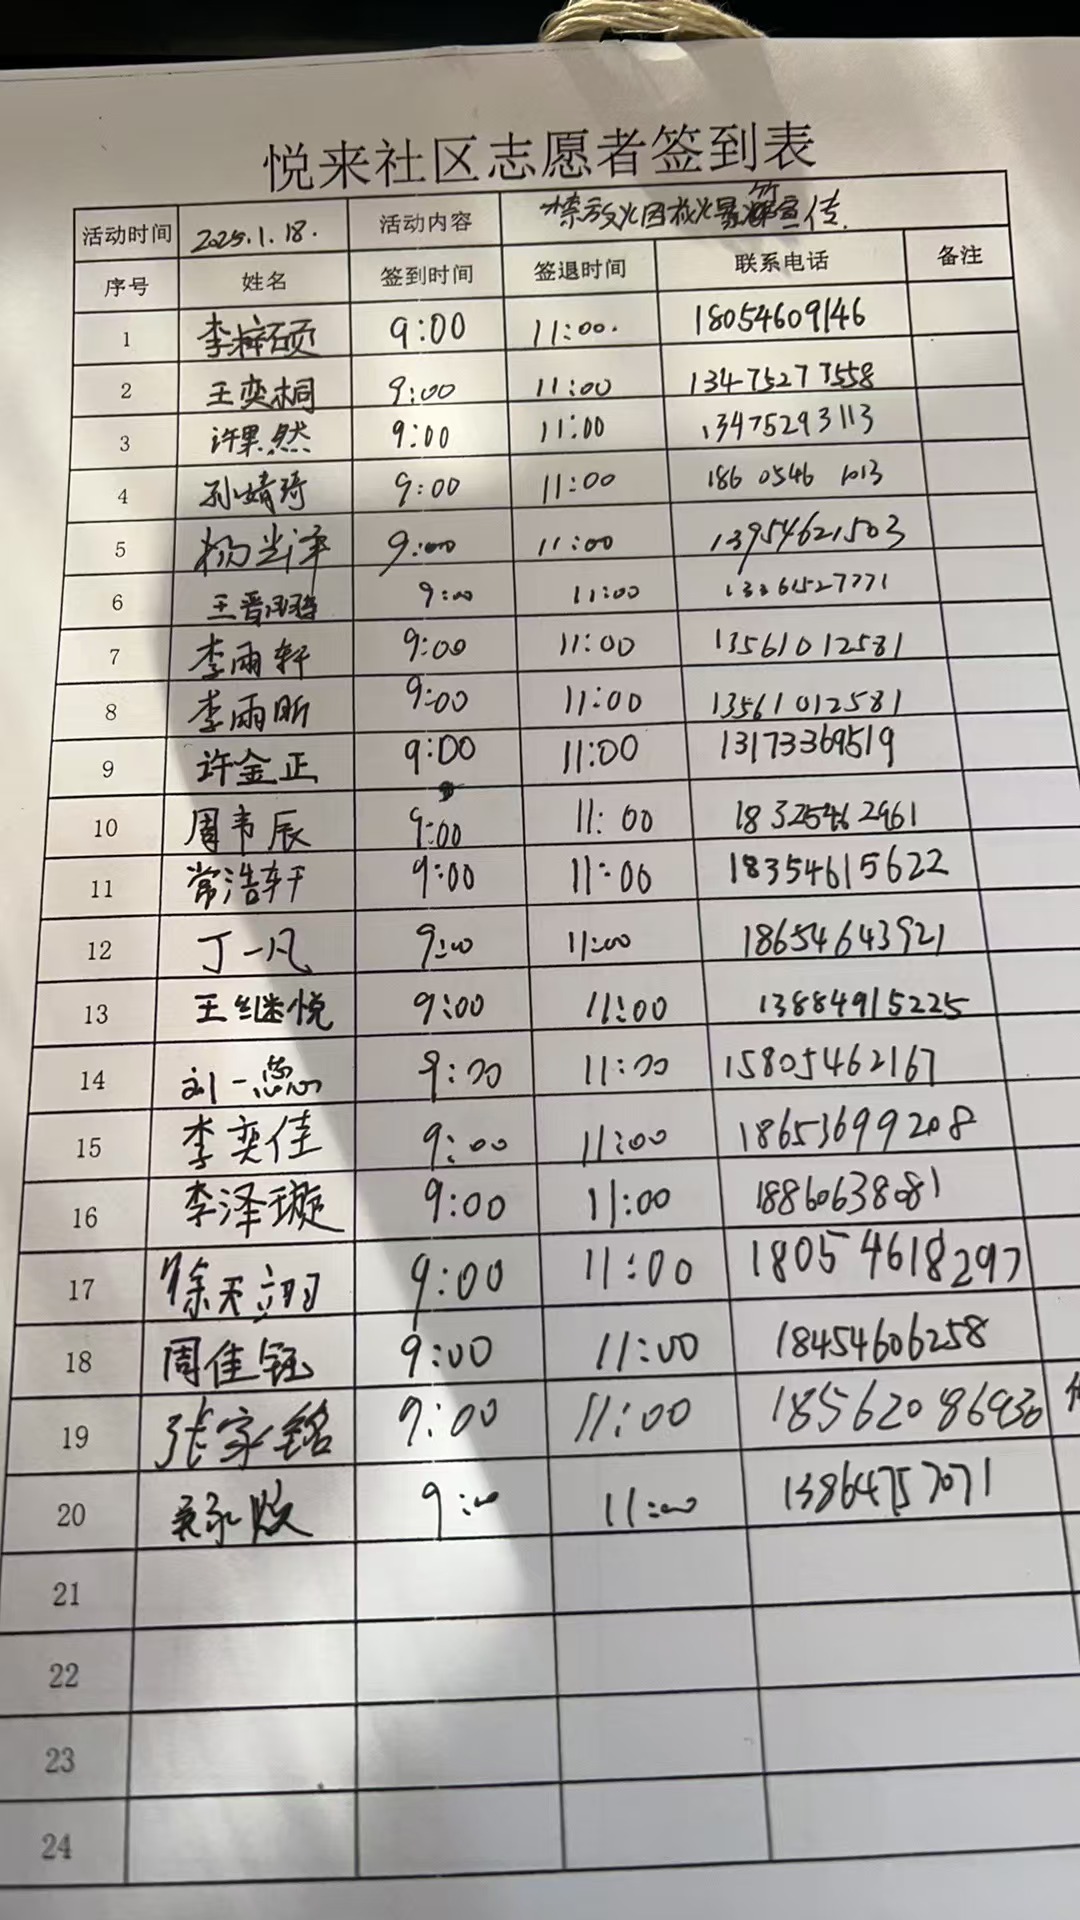 悦来社区志愿者签到表
活动时间 2025.1.18. 活动内容 禁放烟花爆竹宣传.
序号 姓名 签到时间 签退时间 联系电话 备注
1 李梓硕 9:00 11:00. 18054609146
2 王奕桐 9:00 11:00 13475277558
3 许果然 9:00 11:00 13475293113
4 孙婧琦 9:00 11:00 186 0546 1013
5 杨当泽 9:00 11:00 13954621503
6 王晋 9:00 11:00 13361527771
7 李雨轩 9:00 11:00 13561012581
8 李雨昕 9:00 11:00 13561012581
9 许金正 9:00 11:00 13173369519
10 周韦辰 9:00 11:00 18325462961
11 常浩轩 9:00 11:00 18354615622
12 丁一凡 9:00 11:00 18654643921
13 王继悦 9:00 11:00 13884915225
14 刘一 9:00 11:00 15805462167
15 李奕佳 9:00 11:00 18653699208
16 李泽璇 9:00 11:00 18860638081
17 徐天翊 9:00 11:00 18054618297
18 周佳钰 9:00 11:00 18454606258
19 张家铭 9:00 11:00 18562086930
20 9:00 11:00 13864757071
21
22
23
24